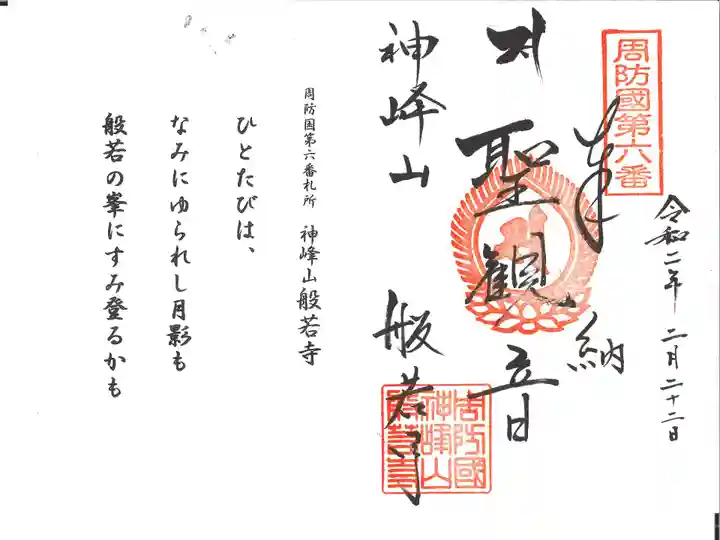 周防國第六番
令和二年 二月二十二日
奉納
聖觀音
神峰山 般若寺
周防國
神峰山
般若寺
周防国第六番札所 神峰山般若寺
ひとたびは、
なみにゆられし月影も
般若の峯にすみ登るかも